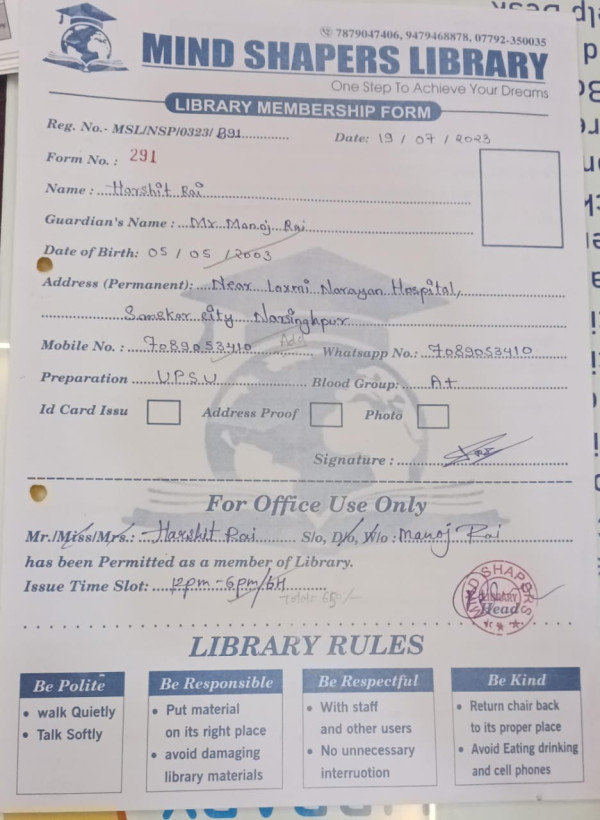 7879047406, 9479468878, 07792-350035
MIND SHAPERS LIBRARY
One Step To Achieve Your Dreams
LIBRARY MEMBERSHIP FORM
Reg. No.- MSL/NSP/0323/ 891
Date: 19 / 07 / 2023
Form No. : 291
Name : Harshit Rai
Guardian's Name : Mr. Manoj Rai
Date of Birth: 05 / 05 / 2003
Address (Permanent): Near Laxmi Narayan Hospital,
Sanskar city Narsinghpur
Mobile No. : 7089053410 Whatsapp No.: 7089053410
Preparation UPSU Blood Group: A+
Id Card Issu Address Proof Photo
Signature :
For Office Use Only
Mr./Miss/Mrs.: Harshit Rai S/o, D/o, W/o : Manoj Rai
has been Permitted as a member of Library.
Issue Time Slot: 12pm - 6pm/6H
MIND SHAPERS
LIBRARY
Head
LIBRARY RULES
Be Polite
• walk Quietly
• Talk Softly
Be Responsible
• Put material
on its right place
• avoid damaging
library materials
Be Respectful
• With staff
and other users
• No unnecessary
interruotion
Be Kind
• Return chair back
to its proper place
• Avoid Eating drinking
and cell phones